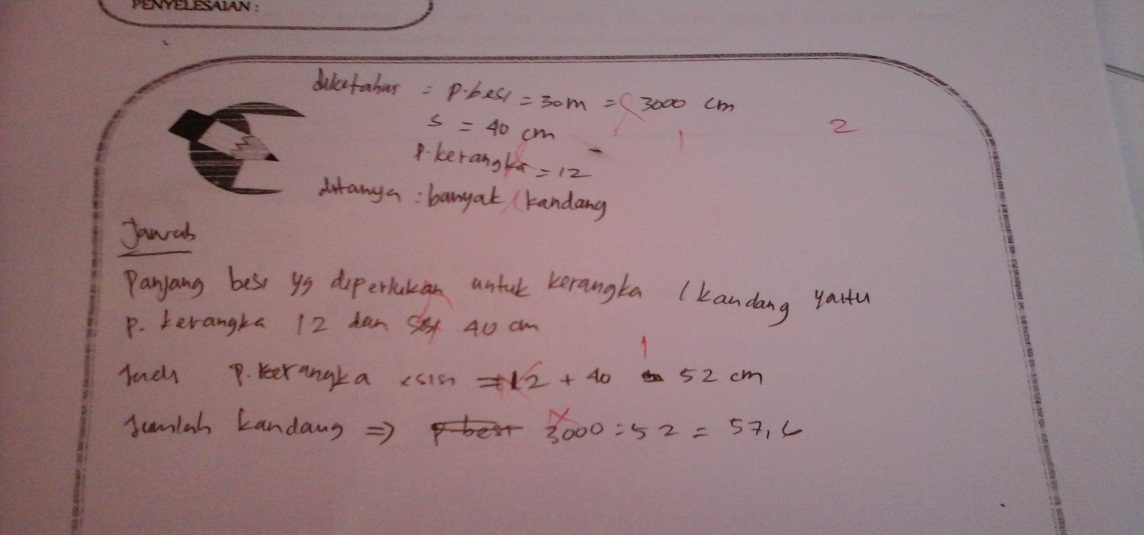 PENYELESAIAN :
diketahui = p.besi = 30 m = 3000 cm
2
s = 40 cm
1
p.kerangka = 12
ditanya : banyak kandang
Jawab
Panjang besi yg diperlukan untuk kerangka / kandang yaitu
p. kerangka 12 dan 40 cm
1
Jadi p.kerangka x sisi = 12 + 40 52 cm
Jumlah kandang => p besi 3000 : 52 = 57,6